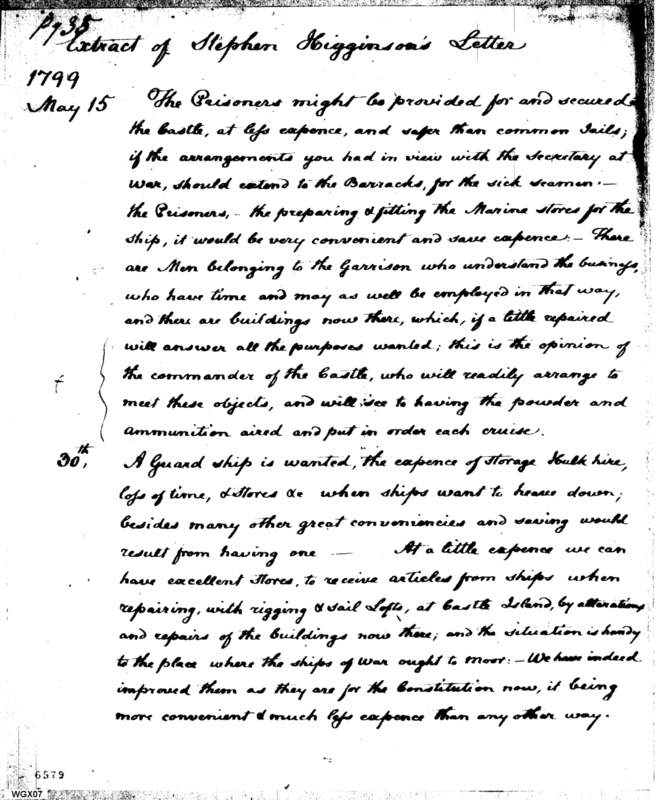 Pg 35
Extract of Stephen Higginson's Letter
1799
May 15 The Prisoners might be provided for and secured
the Castle, at less expence, and safer than common Jails;
if the arrangements you had in view with the Secretary at
War, should extend to the Barracks, for the sick seamen.—
the Prisoners,— the preparing & fitting the Marine stores for the
ship, it would be very convenient and save expence.— There
are Men belonging to the Garrison who understand the business,
who have time and may as well be employed in that way,
and there are buildings now there, which, if a little repaired
will answer all the purposes wanted; this is the opinion of
the commander of the Castle, who will readily arrange to
meet these objects, and will see to having the powder and
ammunition aired and put in order each cruise.
30th, A Guard ship is wanted, the expence of storage Hulk hire,
loss of time, & stores &c when ships want to heave down;
besides many other great conveniencies and saving would
result from having one — At a little expence we can
have excellent stores, to receive articles from ships when
repairing, with rigging & sail Lofts, at Castle Island, by alterations
and repairs of the buildings now there; and the situation is handy
to the place where the ships of war ought to moor:— We have indeed
improved them as they are for the Constitution now, it being
more convenient & much less expence than any other way.
6579
WGX07